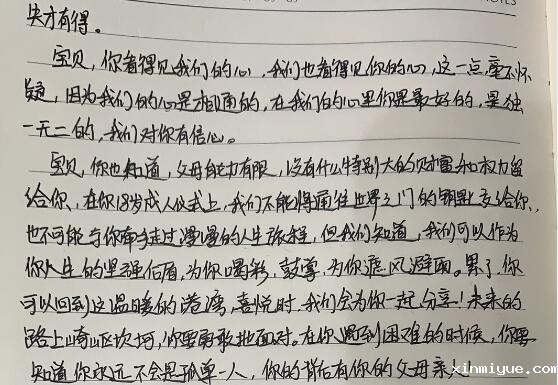 失才有得。
宝贝，你看得见我们的心，我们也看得见你的心，这一点，毫不怀
疑，因为我们的心是相通的，在我们的心里你是最好的，是独
一无二的，我们对你有信心。
宝贝，你也知道，父母能力有限，没有什么特别大的财富和权力留
给你、在你18岁成人仪式上，我们不能将通往世界之门的钥匙交给你，
也不可能与你牵手走过漫漫的人生旅程，但我们知道，我们可以作为
你人生的坚强后盾，为你喝彩，鼓掌，为你遮风避雨。累了，你
可以回到这温暖的港湾，喜悦时，我们会为你一起分享！未来的
路上崎岖坎坷，你要勇敢地面对。在你遇到困难的时候，你要
知道你永远不会是孤单一人，你的背后有你的父母亲人
xinmiyue.com